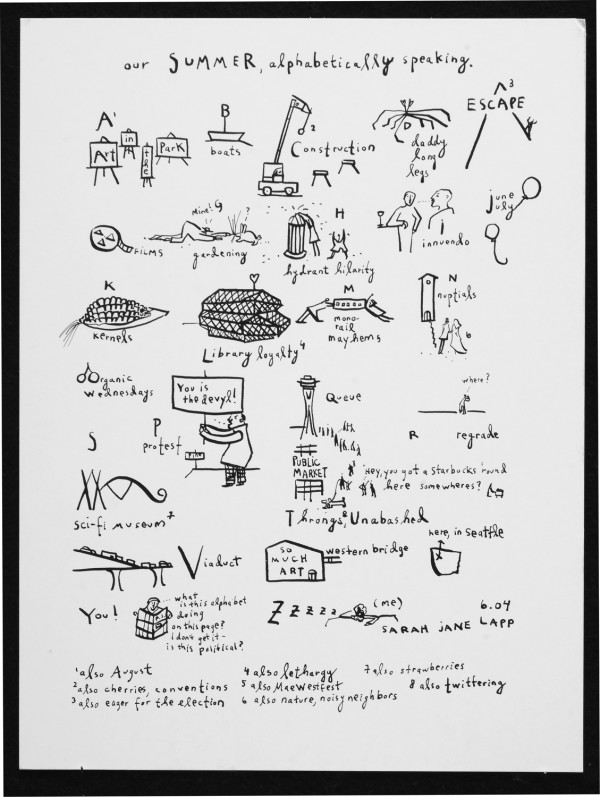 our SUMMER, alphabetically speaking.
A¹
Art in the Park
B
boats
2
Construction
D
daddy
long
legs
3
ESCAPE
FILMS
Mine! G ?
gardening
H
hydrant hilarity
I
innuendo
june
july
K
kernels
Library loyalty⁴
M
mono-
rail
mayhem5
N
nuptials
6
Organic
Wednesdays
P
protest
You is
the devyl!
Queue
where?
R
regrade
S
sci-fi museum⁷
PUBLIC
MARKET
"Hey, you got a Starbucks 'round
here somewheres?"
Throngs,⁸ Unabashed
Viaduct
SO
MUCH
ART
western bridge
here, in Seattle
X
You!
what
is this alphabet
doing
on this page?
I don't get it-
is this political?
Z z z z z (me)
6.04
SARAH JANE LAPP
¹also August
²also cherries, conventions
³also eager for the election
4 also lethargy
5 also Mae Westfest
6 also nature, noisy neighbors
7 also strawberries
8 also twittering